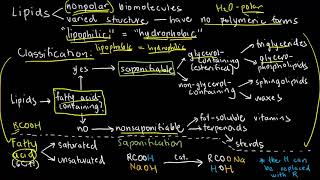 Lipids
nonpolar biomolecules H₂O-polar
varied structure - have no polymeric forms
"lipophilic" = "hydrophobic"
lipophobic = hydrophilic
Classification:
yes
saponifiable
glycerol-containing (esterified)
triglycerides
glycero-phospholipids
non-glycerol-containing
sphingolipids
waxes
Lipids
fatty acid-containing?
no
nonsaponifiable
fat-soluble vitamins
terpenoids
sterols
RCOOH
Fatty acid
saturated
unsaturated
Saponification
RCOOH cat. RCOONa
NaOH H₂O
* the H can be replaced with R